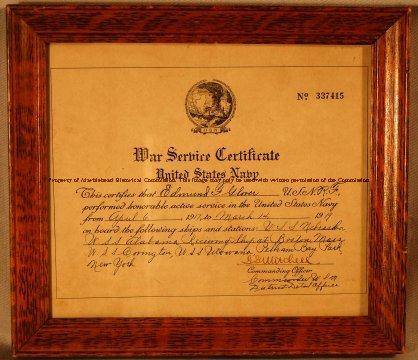 No 337415
War Service Certificate
United States Navy
Property of Marblehead Historical Commission. This image may only be used with written permission of the Commission.
This certifies that Edmund F Glover U.S.N.R.F.
performed honorable active service in the United States Navy
from April 6, 1917, to March 14, 19
on board the following ships and stations: U.S.S. Nebraska
U.S.S Alabama Receiving Ship at Boston Mass
U.S.S Covington, U.S.S Utowana, Pelham Bay Park
New York
Commanding Officer
Commander U S N
District Officer